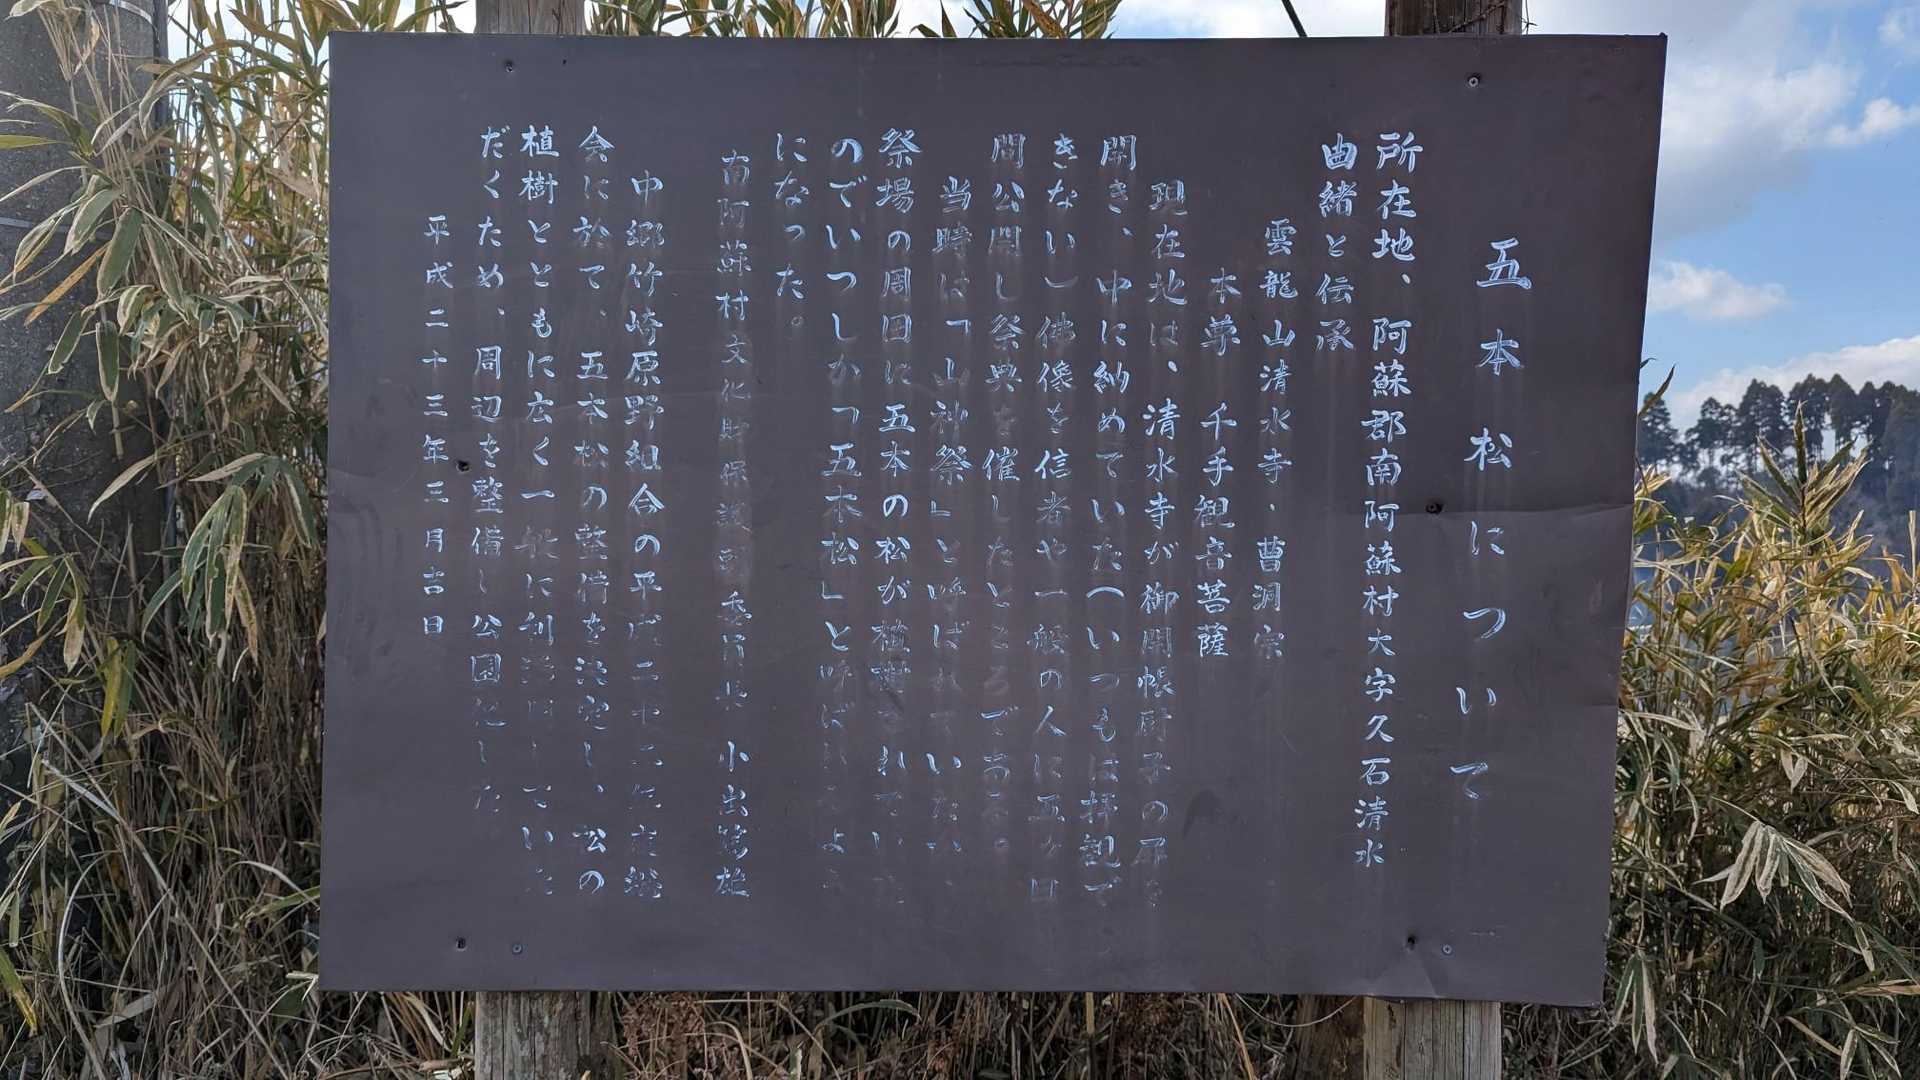 五本松について
所在地、阿蘇郡南阿蘇村大字久石清水
由緒と伝承
雲龍山清水寺・曹洞宗
本尊 千手観音菩薩
現在地は、清水寺が御開帳厨子の扉を
開き、中に納めていた(いつもは拝観で
きない)佛像を信者や一般の人に五ヶ日
間公開し祭典を催したところである。
当時は「山神祭」と呼ばれていたが、
祭場の周囲に五本の松が植樹されていた
のでいつしか「五本松」と呼ばれるよう
になった。
南阿蘇村文化財保護委員長 小出篤雄
中郷竹崎原野組合の平成二十二年度総
会に於て、五本松の整備を決定し、松の
植樹とともに広く一般に利活用していた
だくため、周辺を整備し公園化した。
平成二十三年三月吉日